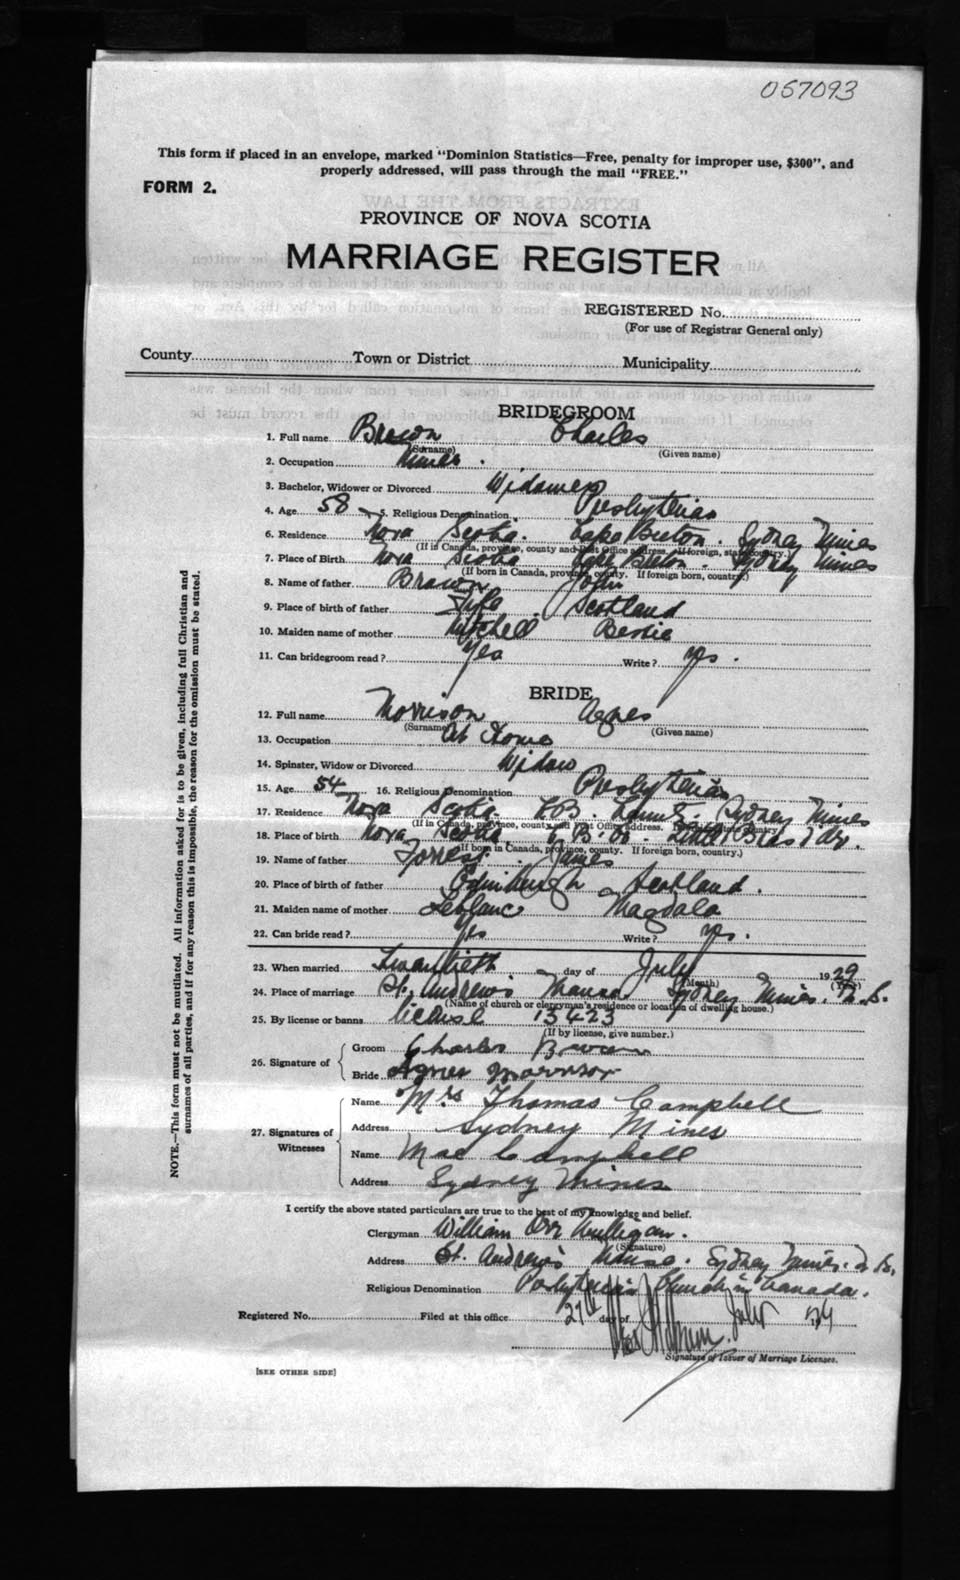 057093
This form if placed in an envelope, marked "Dominion Statistics—Free, penalty for improper use, $300", and
properly addressed, will pass through the mail "FREE."
FORM 2.
PROVINCE OF NOVA SCOTIA
MARRIAGE REGISTER
REGISTERED No.
(For use of Registrar General only)
County Town or District Municipality
BRIDEGROOM
1. Full name Brown Charles
(Surname) (Given name)
2. Occupation Miner.
3. Bachelor, Widower or Divorced Widower
4. Age 58 5. Religious Denomination Presbyterian
6. Residence Nova Scotia. Cape Breton. Sydney Mines
(If in Canada, province, county and Post Office address. If foreign, state country.)
7. Place of Birth Nova Scotia Cape Breton. Sydney Mines
(If born in Canada, province, county. If foreign born, country.)
8. Name of father Brown John
9. Place of birth of father Fife Scotland
10. Maiden name of mother Mitchell Bessie
11. Can bridegroom read? Yes Write? yes.
BRIDE
12. Full name Morrison Agnes
(Surname) (Given name)
13. Occupation At Home
14. Spinster, Widow or Divorced Widow
15. Age 54 16. Religious Denomination Presbyterian
17. Residence Nova Scotia C.B. County Sydney Mines
(If in Canada, province, county and Post Office address. If foreign, state country.)
18. Place of birth Nova Scotia C.B. Co. Little Bras d'Or.
(If born in Canada, province, county. If foreign born, country.)
19. Name of father Forrest James
20. Place of birth of father Edinburgh Scotland.
21. Maiden name of mother Leblanc Magdala
22. Can bride read? Yes Write? yes.
23. When married Twentieth day of July 1929
(Month) (Year)
24. Place of marriage St. Andrew's Manse Sydney Mines. N.S.
(Name of church or clergyman's residence or location of dwelling house.)
25. By license or banns license 13423
(If by license, give number.)
26. Signature of Groom Charles Brown
Bride Agnes Morrison
27. Signatures of Witnesses
Name Mrs Thomas Campbell
Address Sydney Mines
Name Mae Campbell
Address Sydney Mines
I certify the above stated particulars are true to the best of my knowledge and belief.
Clergyman William Orr Mulligan.
(Signature)
Address St. Andrew's Manse. Sydney Mines. N.S.
Religious Denomination Presbyterian Church in Canada.
Registered No. Filed at this office 27th day of July
Signature of Issuer of Marriage Licenses.
[SEE OTHER SIDE]
NOTE.—This form must not be mutilated. All information asked for is to be given, including full Christian and
surnames of all parties, and if for any reason this is impossible, the reason for the omission must be stated.